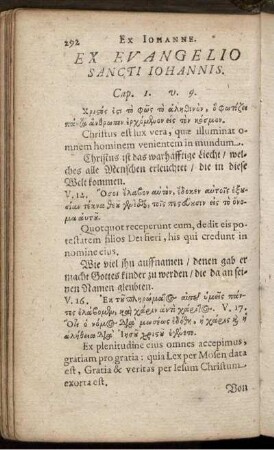 292 EX IOHANNE.
EX EVANGELIO
SANCTI IOHANNIS.
Cap. 1. v. 9.
ἐστὶ τὸ φῶς τὸ ἀληθινὸν, ὃ φωτίζει
ἄνθρωπον ἐρχόμενον εἰς τὸν κόσμον.
Christus est lux vera, quæ illuminat o-
mnem hominem venientem in mundum.
Christus ist das warhafftige Liecht / wel-
ches alle Menschen erleuchtet / die in diese
Welt kommen.
V. 12. Ὅσοι ἔλαβον αὐτὸν, ἔδωκεν αὐτοῖς ἐξου-
σίαν τέκνα θεοῦ γενέσθαι, τοῖς πιστεύουσιν εἰς τὸ ὄνο-
μα αὐτοῦ.
Quotquot receperunt eum, dedit eis po-
testatem filios Dei fieri, his qui credunt in
nomine eius.
Wie viel ihn auffnamen / denen gab er
macht Gottes kinder zu werden / die da an sei-
nen Namen gleubten.
V. 16. Ἐκ τοῦ πληρώματος αὐτοῦ ἡμεῖς πάν-
τες ἐλάβομεν, καὶ χάριν ἀντὶ χάριτος. V. 17.
Ὅτι ὁ νόμος διὰ μωσέως ἐδόθη, ἡ χάρις καὶ ἡ
ἀλήθεια διὰ Ἰησοῦ χριστοῦ ἐγένετο.
Ex plenitudine eius omnes accepimus,
gratiam pro gratia: quia Lex per Mosen data
est, Gratia & veritas per Iesum Christum
exorta est.
Von